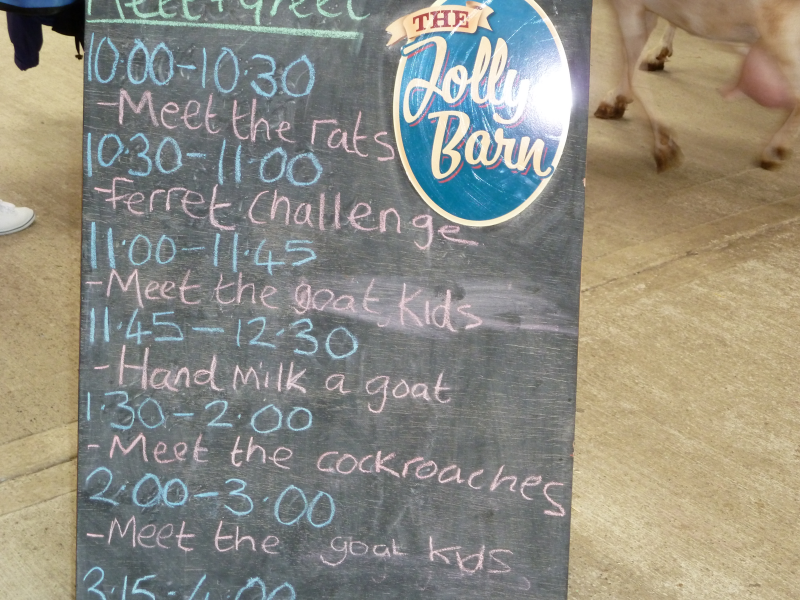 Meet + Greet
THE
Jolly
Barn
10:00-10:30
-Meet the rats
10:30-11:00
-ferret challenge
11:00-11:45
-Meet the goat kids
11:45-12:30
-Hand milk a goat
1:30-2:00
-Meet the cockroaches
2:00-3:00
-Meet the goat kids
3:15-4:00